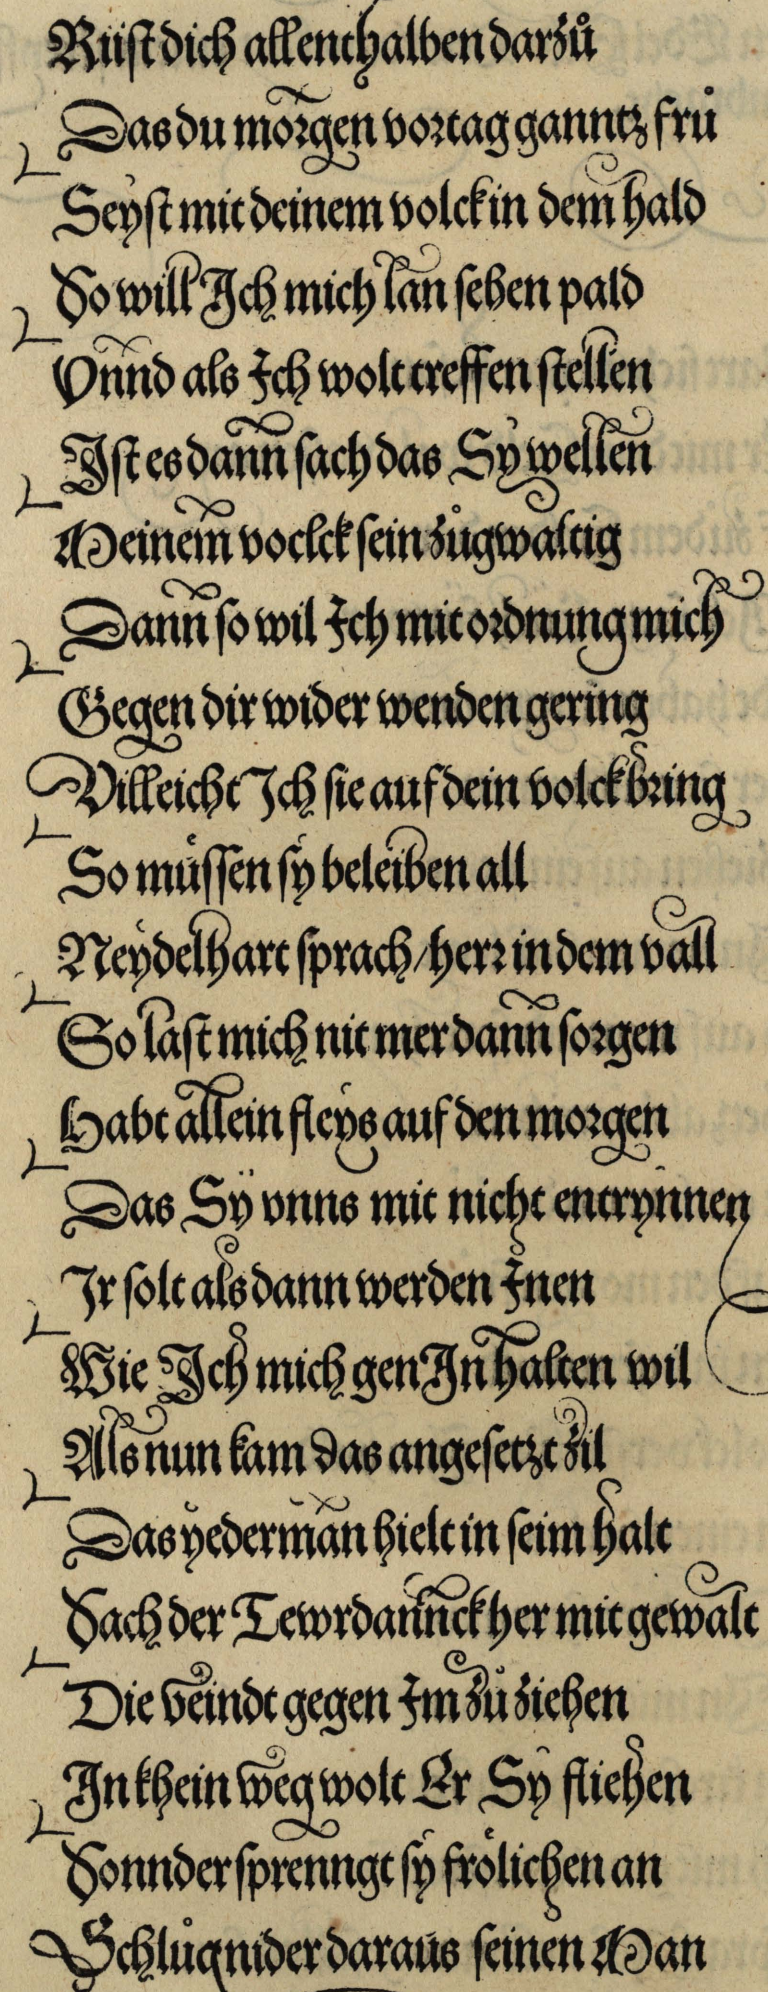 Rüst dich allenthalben darzů
Das du morgen vor tag ganntz frů
Seyst mit deinem volck in dem hald
So will Ich mich lan sehen pald
Vnnd als Ich wolt treffen stellen
Ist es dann sach das Sy wellen
Meinem voclck sein zůgwaltig
Dann so wil Ich mit ordnung mich
Gegen dir wider wenden gering
Villeicht Ich sie auf dein volck bring
So müssen sy beleiben all
Neydelhart sprach / herr in dem vall
So last mich nit mer dann sorgen
Habt allein fleys auf den morgen
Das Sy vnns mit nicht entrynnen
Ir solt als dann werden Innen
Wie Ich mich gen In halten wil
Als nun kam das angesetzt zil
Das yederman hielt in seim halt
Sach der Tewrdannckh er mit gewalt
Die veindt gegen Im zů ziehen
In khein weg wolt Er Sy fliehen
Sonnder sprenngt sy frölichen an
Schlůg nider daraus seinen Man